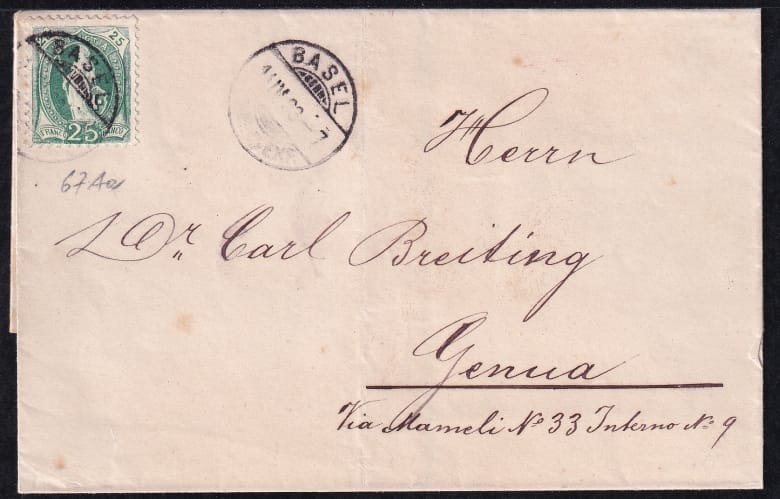 25
BASEL
FRANCO 25 FRANCO
BASEL
Herrn
Dr. Carl Breiting
Genua
Via Mameli No 33 Interno No 9